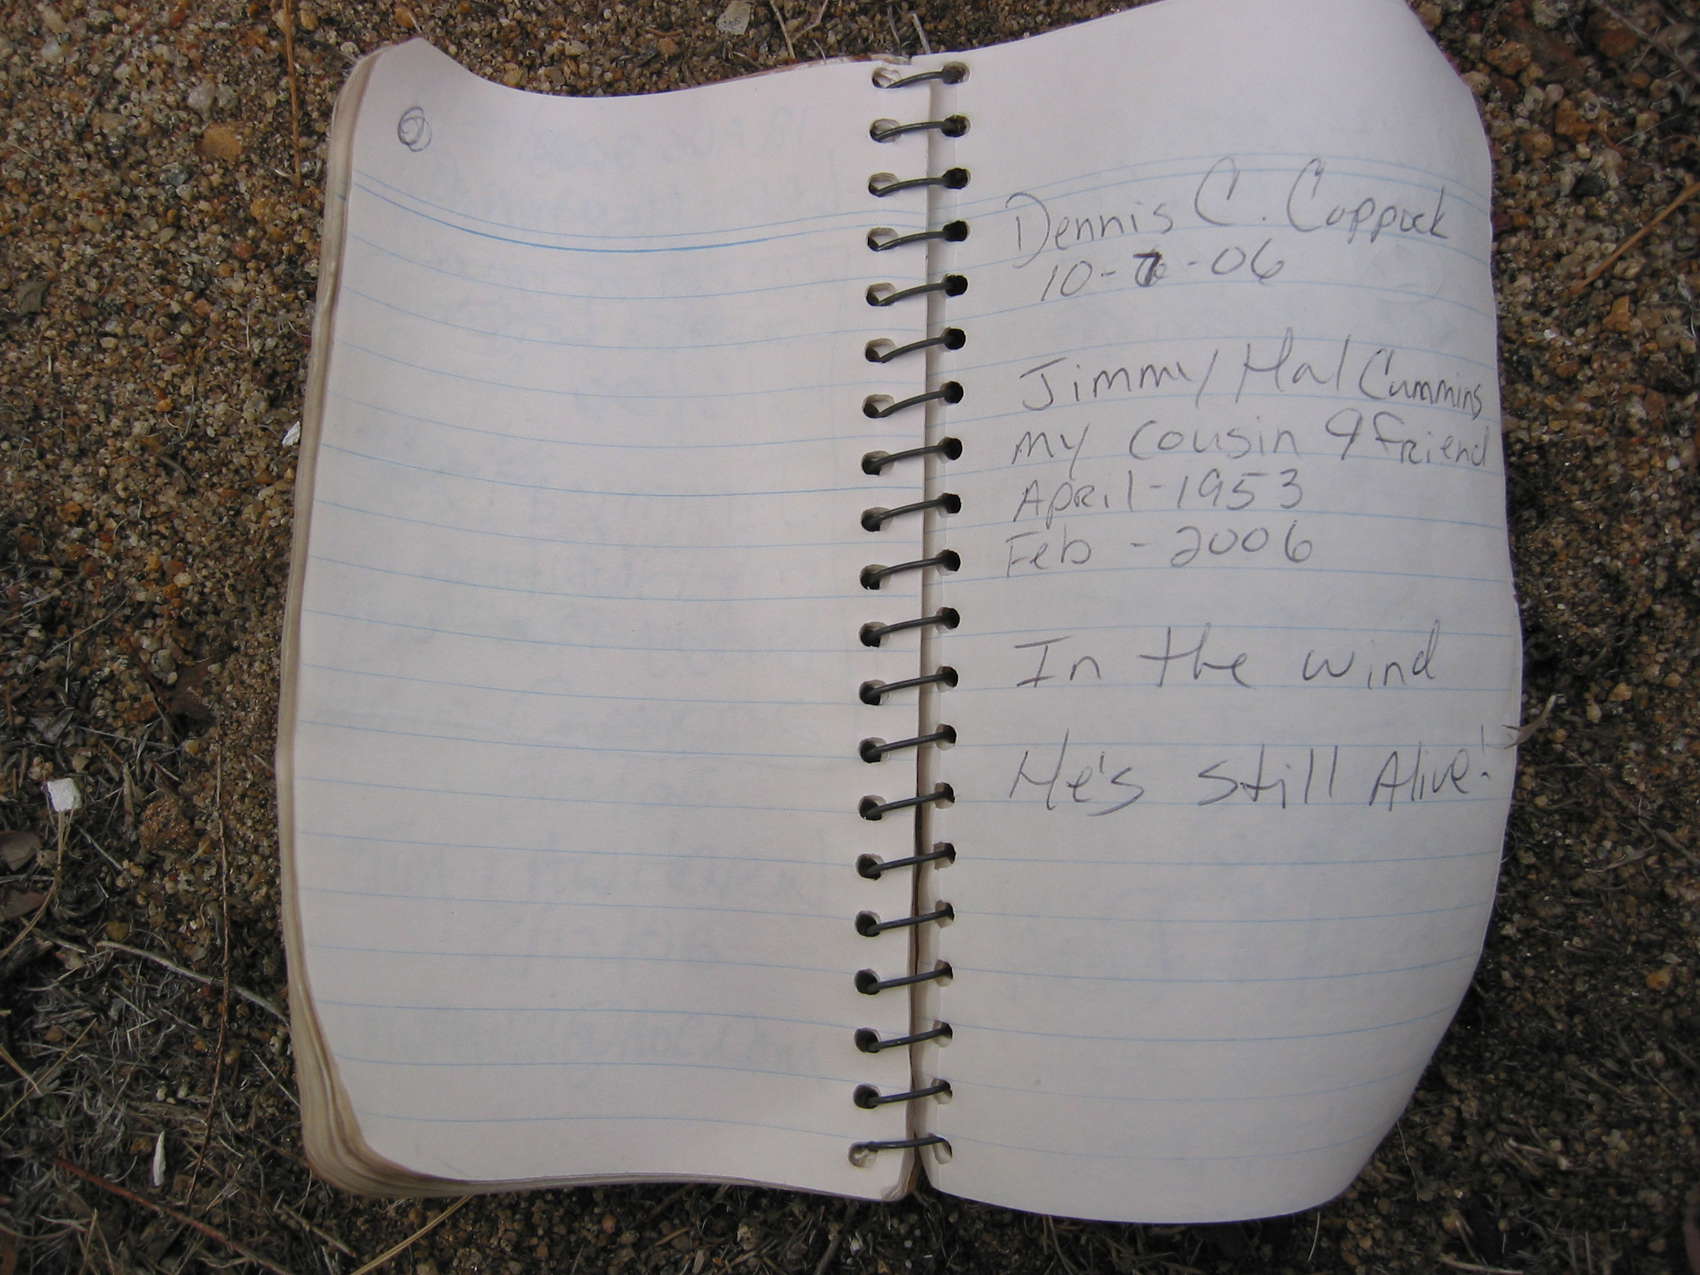 Dennis C. Coppock
10-7-06
Jimmy Hal Cummins
my cousin & friend
April-1953
Feb - 2006
In the wind
He's still Alive!